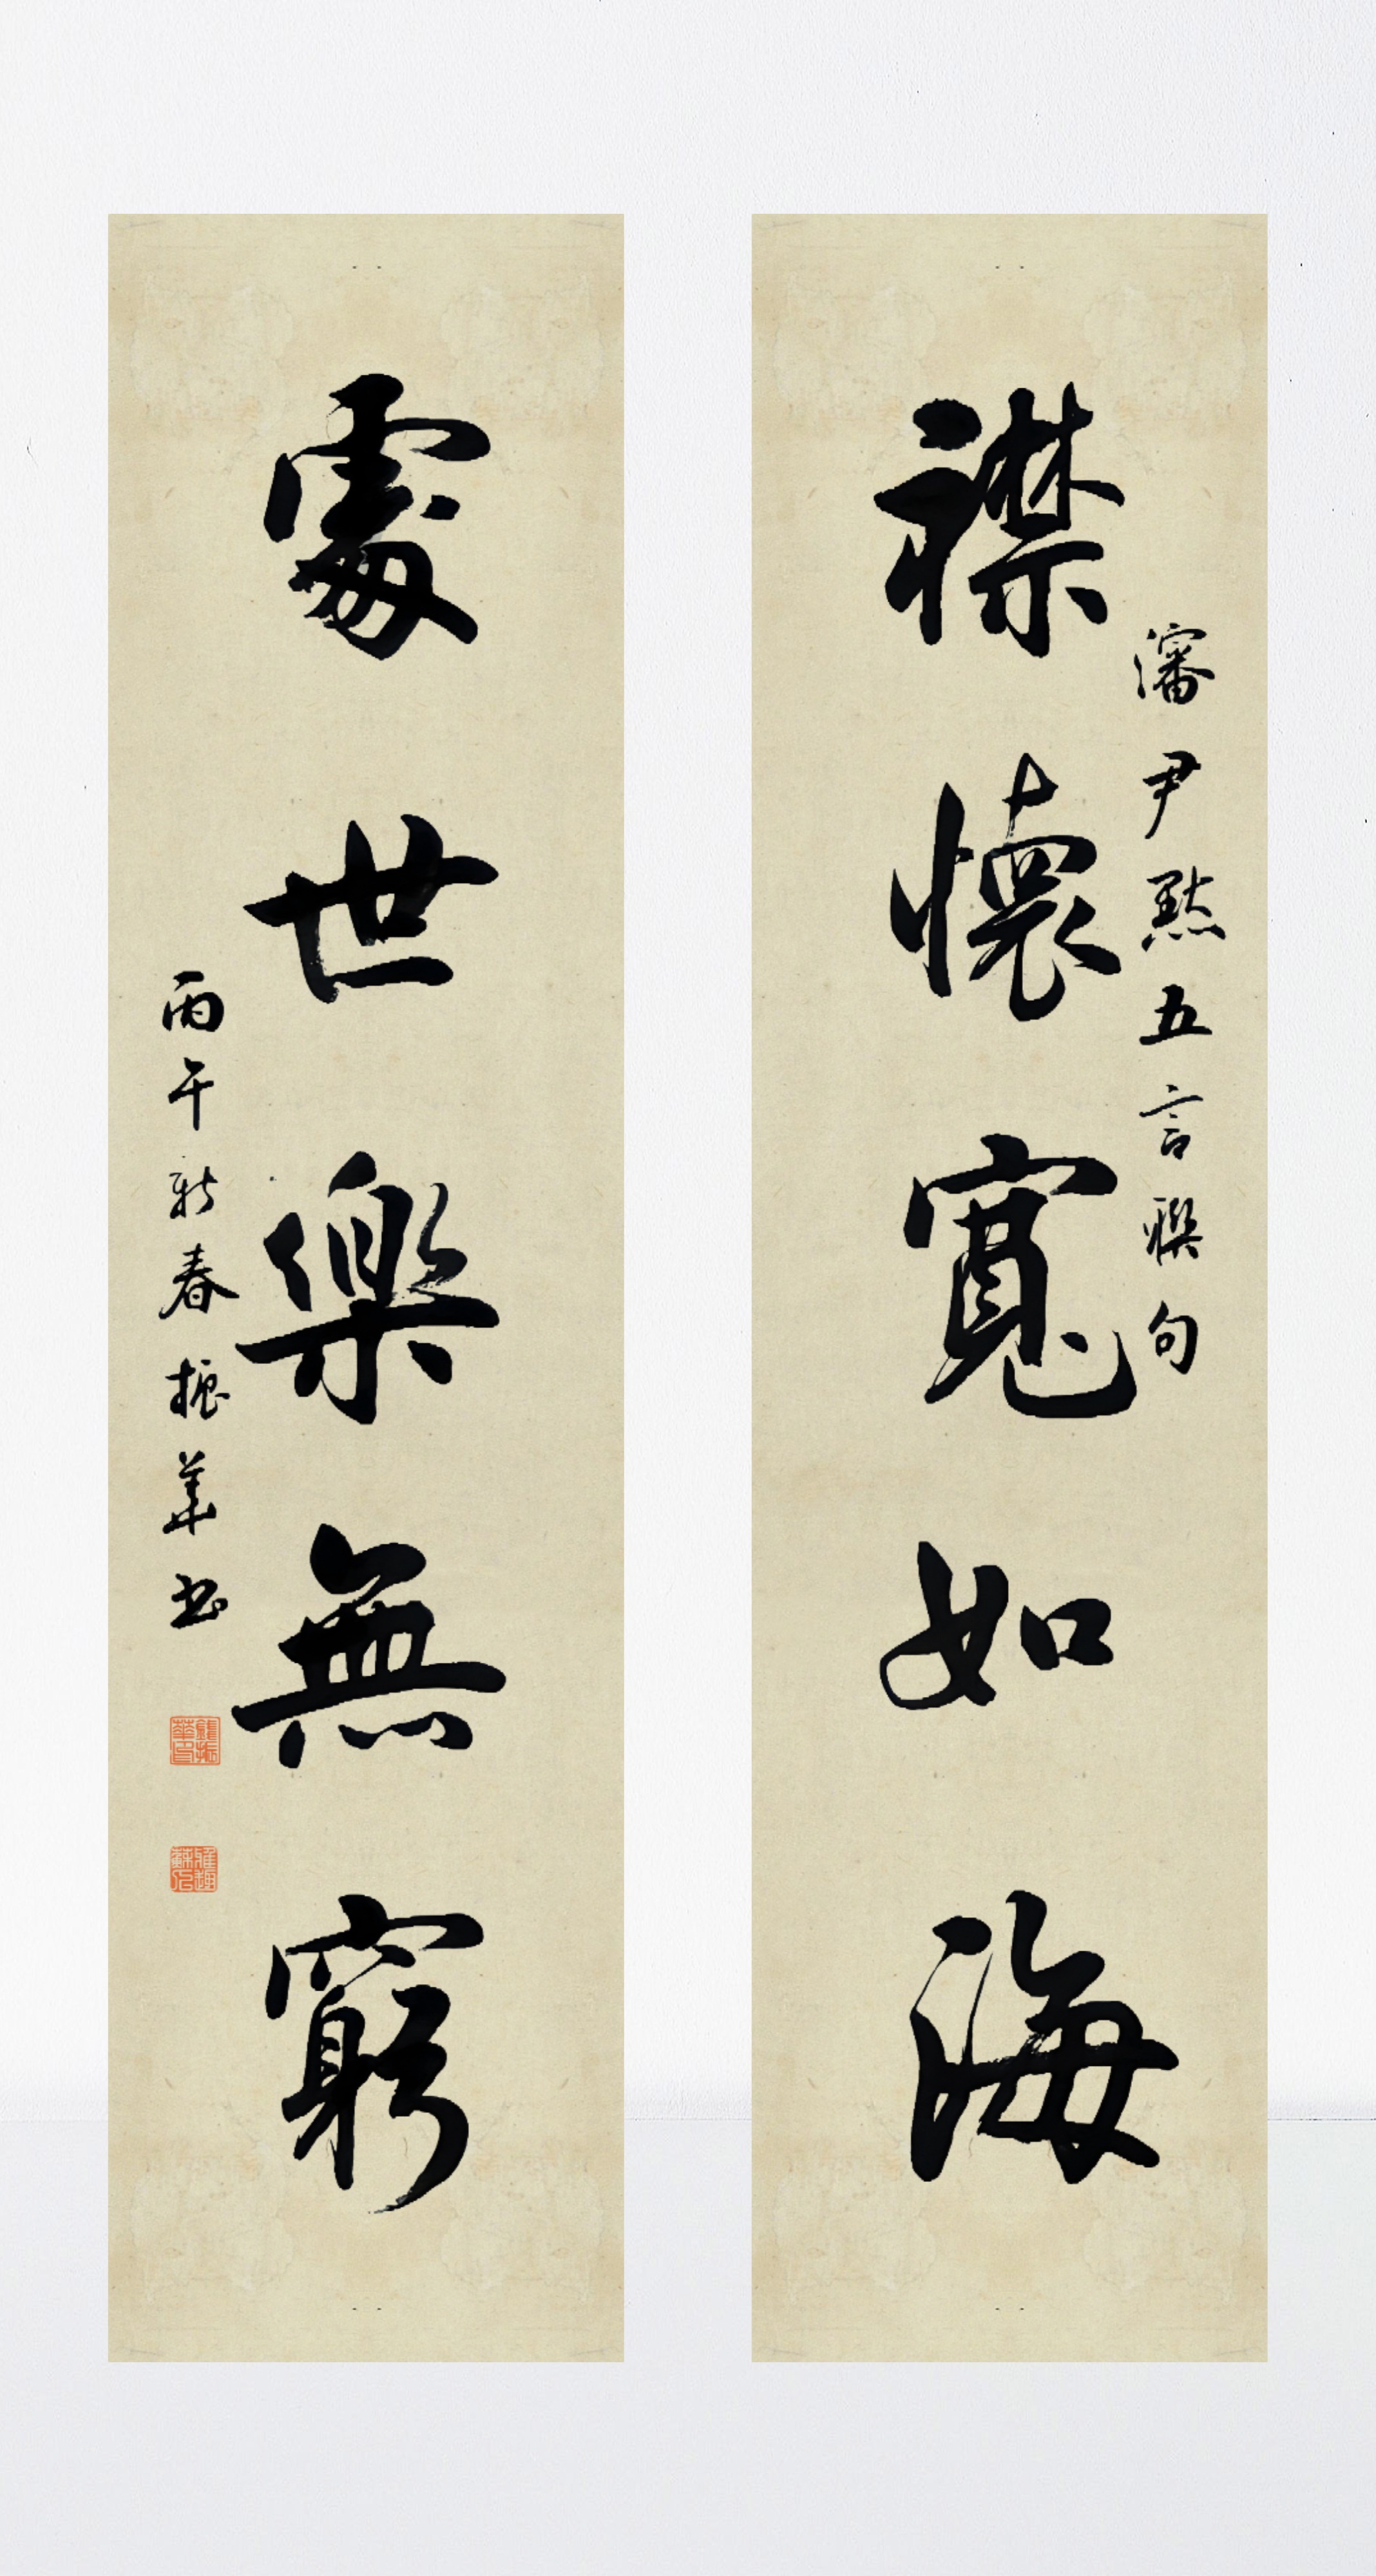 襟懷寬如海
瀋尹默五言聯句
處世樂無窮
丙午新春振華书
龔振華印